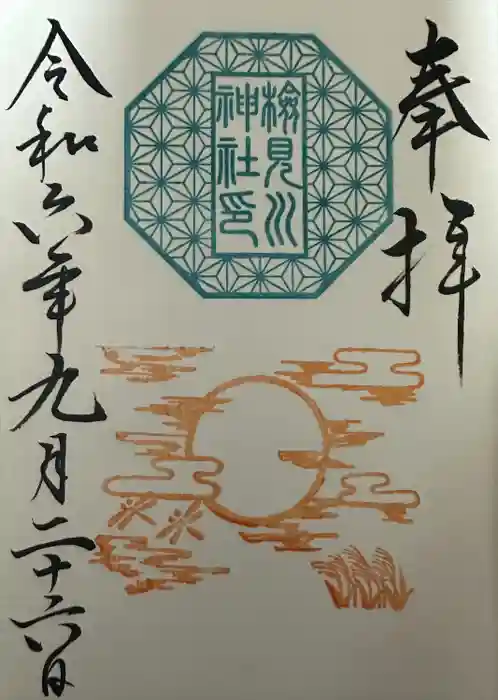 奉拝
検見川
神社印
令和六年九月二十六日